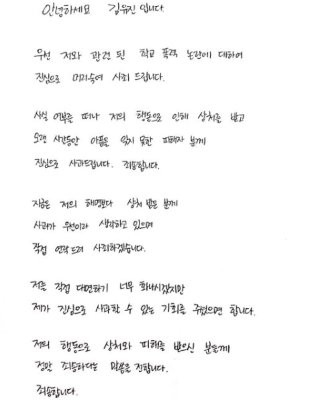 안녕하세요 김유진 입니다
우선 저와 관련 된 학교 폭력 논란에 대하여
진심으로 머리숙여 사죄 드립니다.
사실 여부를 떠나 저의 행동으로 인해 상처를 받고
오랜 시간동안 아픔을 잊지 못한 피해자 분께
진심으로 사과드립니다. 죄송합니다.
지금은 저의 해명보다 상처 받은 분께
사과가 우선이라 생각하고 있으며
직접 연락드려 사죄하겠습니다.
저를 직접 대면하기 너무 화나시겠지만
제가 진심으로 사과할 수 있는 기회를 주셨으면 합니다.
저의 행동으로 상처와 피해를 받으신 분들께
정말 죄송하다는 말씀을 전합니다.
죄송합니다.